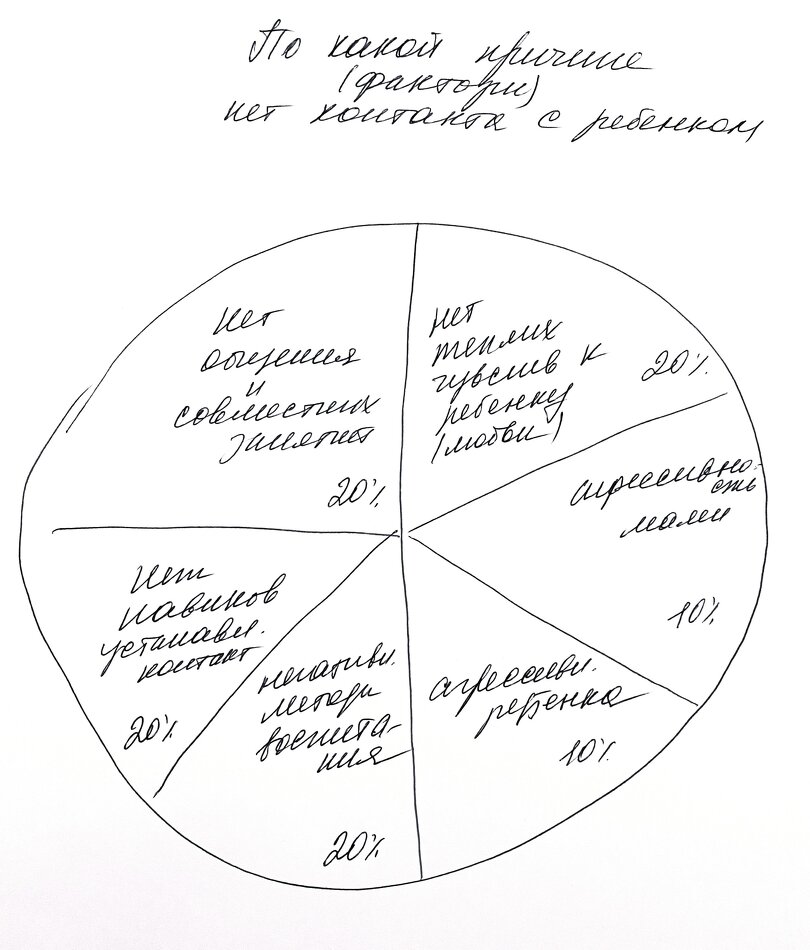 По какой причине
(фактори)
нет контакта с ребенком
Нет
общения
и
совместних
занятий
20%
нет
теплих
чувств к
ребенку
(любви)
20%
агрессивно-
сть
мами
10%
агрессивн.
ребенка
10%
негативн.
методи
воспита-
ния
20%
Нет
навиков
установл.
контакт
20%